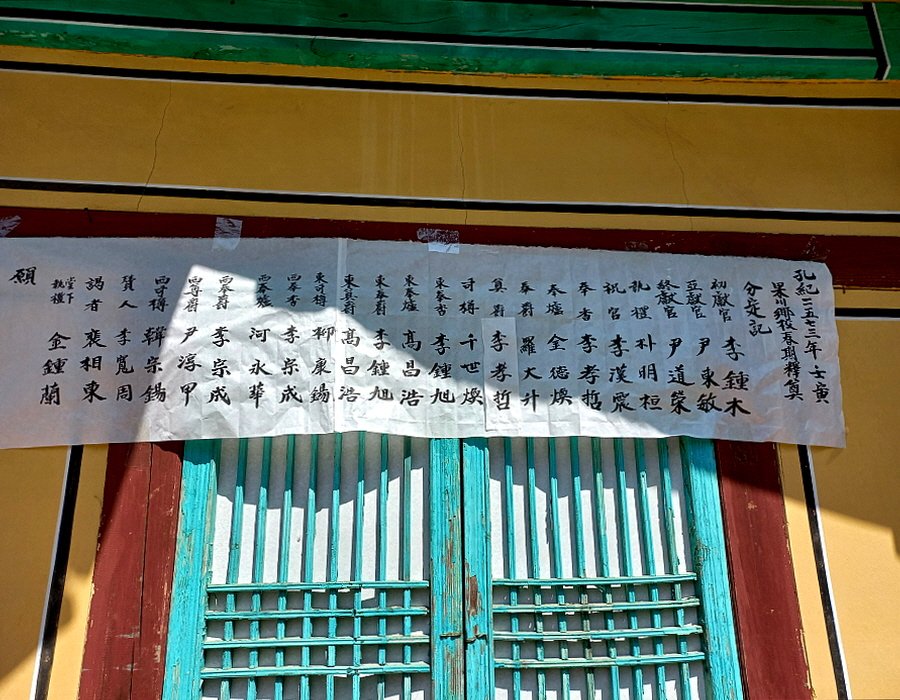 孔紀二五七三年 壬寅
果川鄕校春期釋奠
分定記
初獻官 李鍾木
亞獻官 尹東敏
終獻官 尹道榮
執禮 朴明桓
祝官 李漢震
奉香 李孝哲
奉爐 全德煥
奉爵 羅大升
奠爵 李孝哲
司樽 千世煥
東奉香 李鍾旭
東奉爐 高昌浩
東奉爵 李鍾旭
東奠爵 高昌浩
東司樽 柳康錫
西奉香 李宗成
西奉爐 河永華
西奉爵 李宗成
西奠爵 尹淳甲
西司樽 韓宗錫
贊人 李寬周
謁者 裵相東
堂下執禮 金鍾蘭
願